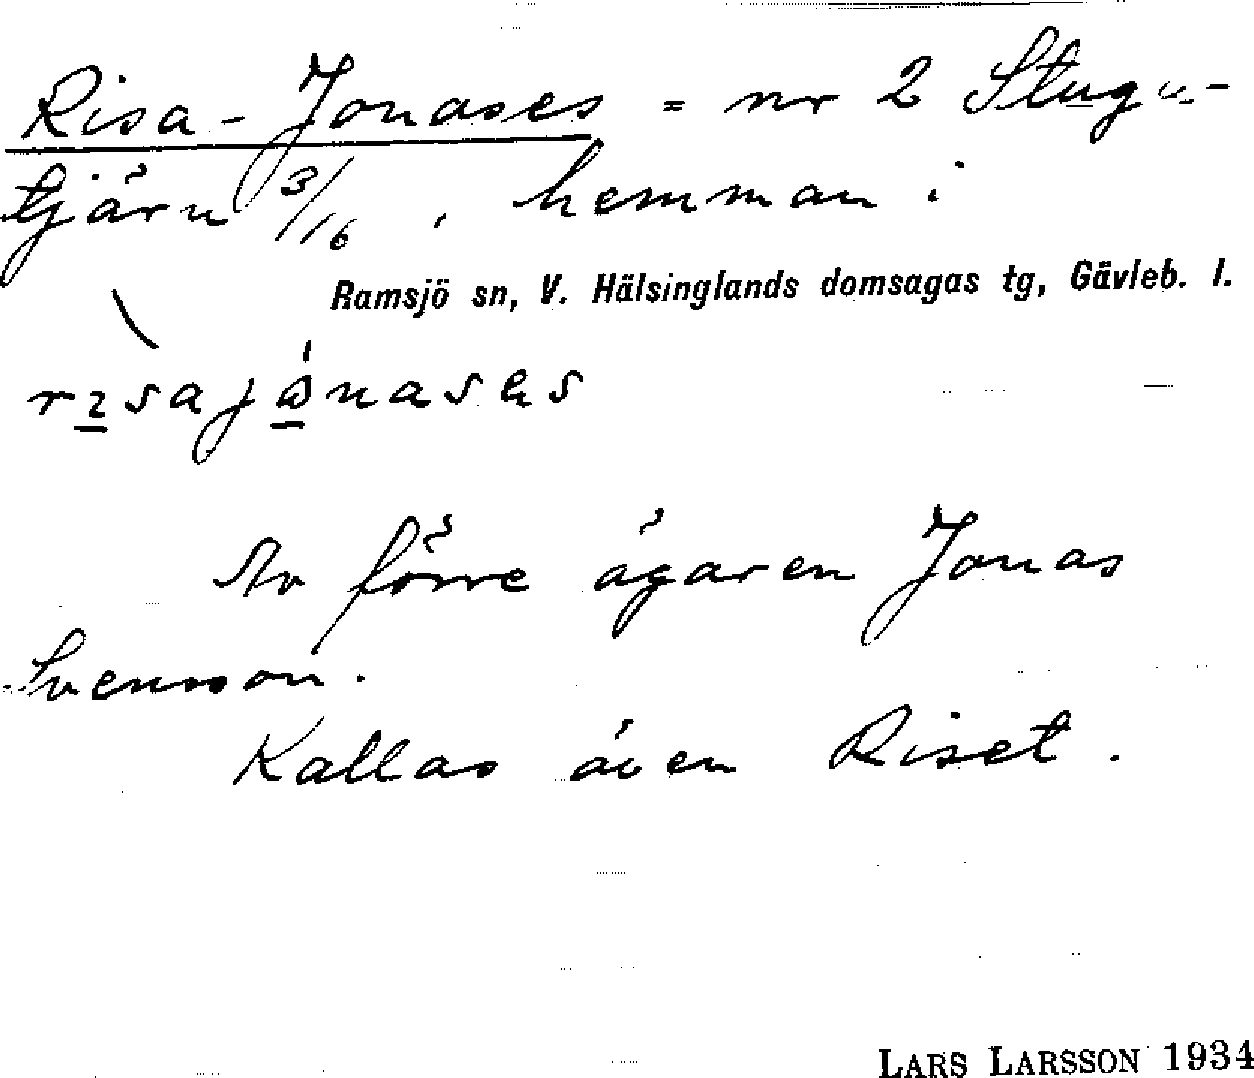 Risa-Jonases = nr 2 Stugu-
tjärn 3/16, hemman i
Ramsjö sn, V. Hälsinglands domsagas tg, Gävleb. l.
Av förre ägaren Jonas
Svensson.
Kallas även Riset.
LARS LARSSON 1934